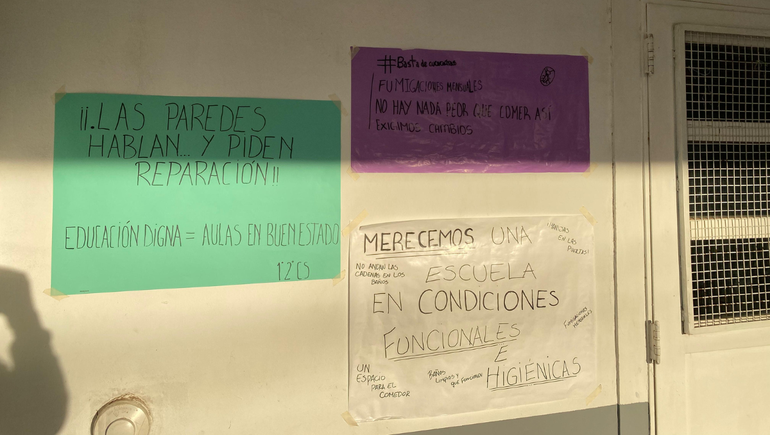 ¡¡.LAS PAREDES
HABLAN... Y PIDEN
REPARACIÓN!!
EDUCACIÓN DIGNA = AULAS EN BUEN ESTADO
1°2°CS
#Basta de cucarachas
FUMIGACIONES MENSUALES
NO HAY NADA PEOR QUE COMER ASÍ
EXIGIMOS CAMBIOS
MERECEMOS UNA
ESCUELA
EN CONDICIONES
FUNCIONALES
E
HIGIÉNICAS
EN LAS
NO ANDAN LAS
CADENAS EN LOS
BAÑOS
FUMIGACIONES
MENSUALES
UN
ESPACIO
PARA EL
COMEDOR
BAÑOS
LIMPIOS Y
QUE FUNCIONEN